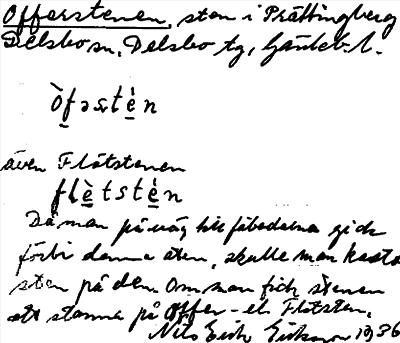 Offerstenen, sten i Prästingberg
Delsbo sn, Delsbo tg, Gävleb. l.
òfəstèn
även Flätstenen
flètstèn
Då man på väg till fäbodarna gick
förbi denna sten, skulle man kasta
sten på den. Om man fick stenen
att stanna på Offer- el. Flätsten.
Nils Erik Eriksson 1936